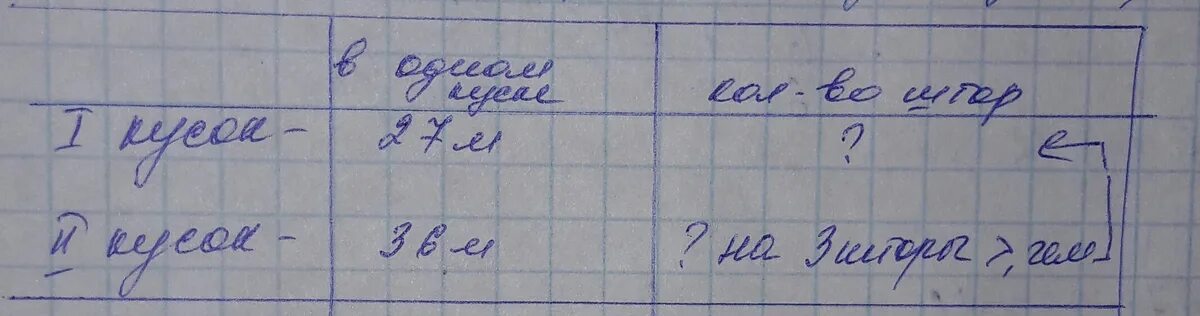 в одном
куске
кол-во штор
I кусок - 27 м ?
II кусок - 36 м ? на 3 шторы >, чем